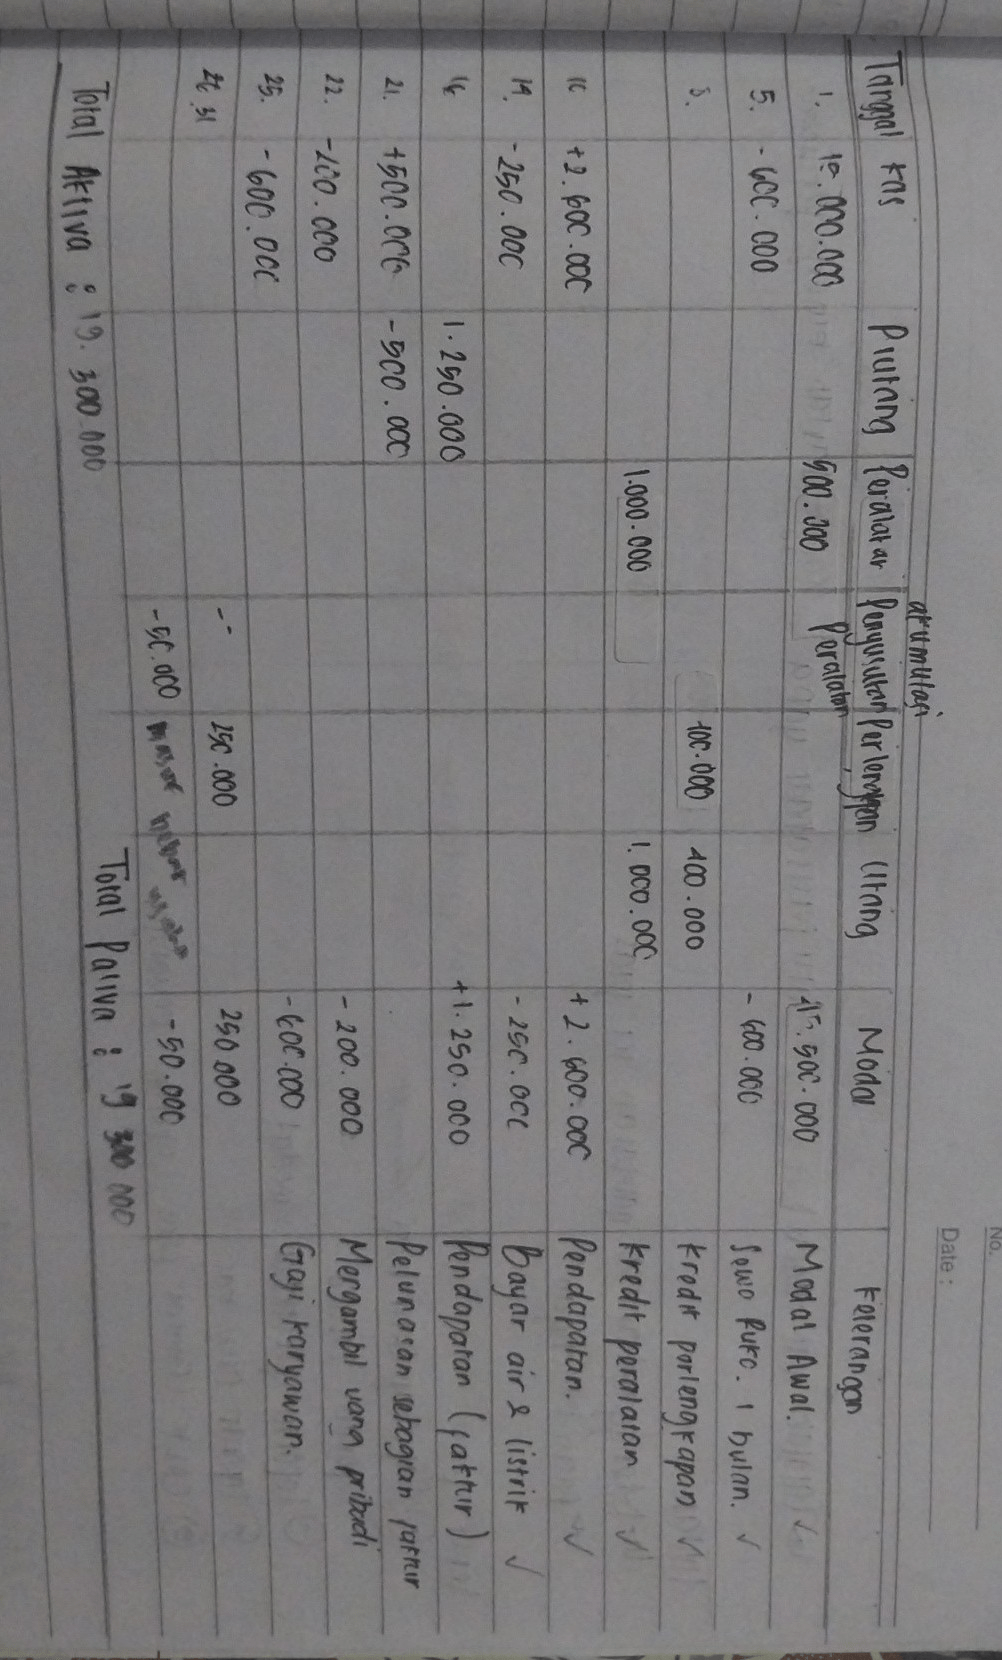 No.
Date :
akumulasi
Tanggal Kas Piutang Peralatan Penyusutan Perlengkapan Utang Modal Keterangan
Peralatan
1. 15.000.000 500.000 15.500.000 Modal Awal.
5. -600.000 -600.000 Sewa Ruko 1 bulan.
8. 400.000 400.000 Kredit perlengkapan
1.000.000 1.000.000 Kredit peralatan
10 +2.600.000 +2.600.000 Pendapatan.
14. -250.000 -250.000 Bayar air & listrik
16 1.250.000 +1.250.000 Pendapatan (faktur)
21. +500.000 -500.000 Pelunasan sebagian faktur
22. -200.000 -200.000 Mengambil uang pribadi
25. -600.000 -600.000 Gaji karyawan.
31 -- 250.000 250.000
-50.000 -50.000
Total Aktiva : 19.300.000 Total Pasiva : 19 300 000